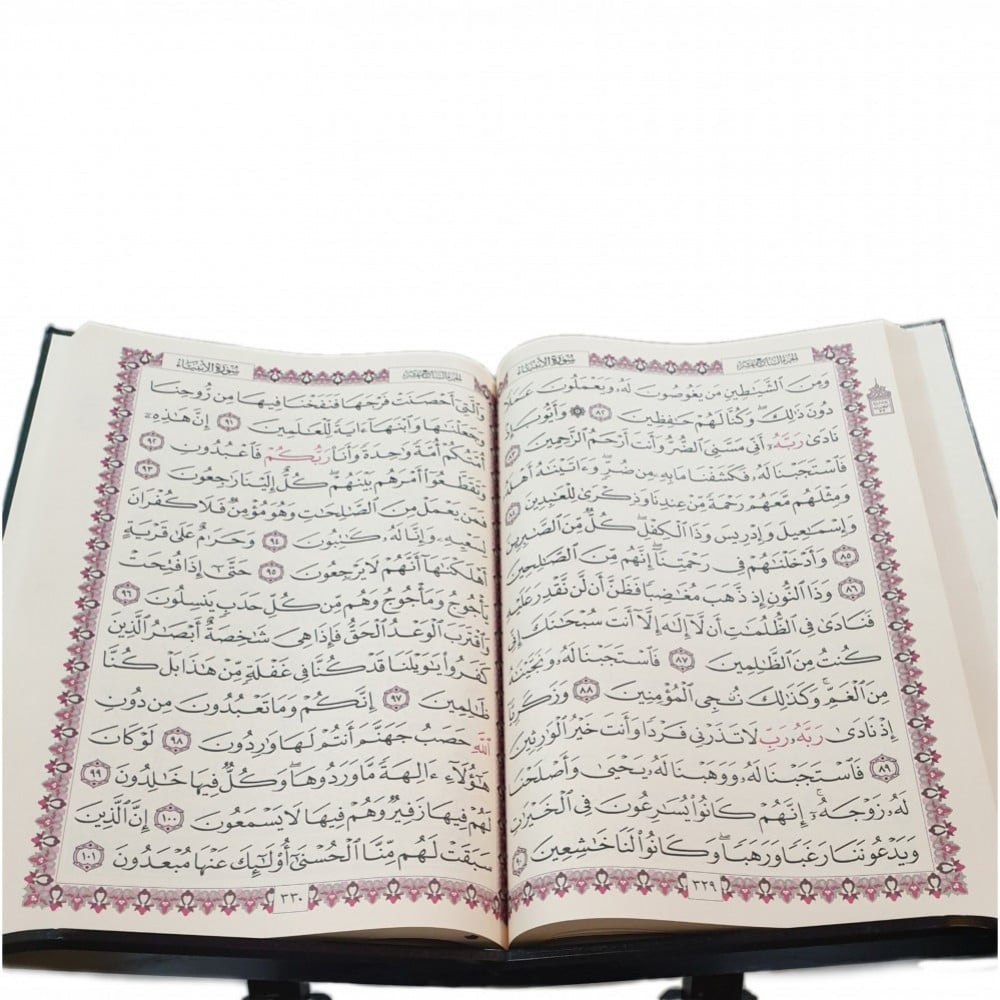 الجزء السابع عشر سورة الأنبياء
وَمِنَ ٱلشَّيَـٰطِينِ مَن يَغُوصُونَ لَهُۥ وَيَعْمَلُونَ عَمَلًا
دُونَ ذَٰلِكَ ۖ وَكُنَّا لَهُمْ حَـٰفِظِينَ ٨٢ ۞ وَأَيُّوبَ إِذْ
نَادَىٰ رَبَّهُۥٓ أَنِّى مَسَّنِىَ ٱلضُّرُّ وَأَنتَ أَرْحَمُ ٱلرَّٰحِمِينَ ٨٣
فَٱسْتَجَبْنَا لَهُۥ فَكَشَفْنَا مَا بِهِۦ مِن ضُرٍّ ۖ وَءَاتَيْنَـٰهُ أَهْلَهُۥ
وَمِثْلَهُم مَّعَهُمْ رَحْمَةً مِّنْ عِندِنَا وَذِكْرَىٰ لِلْعَـٰبِدِينَ ٨٤
وَإِسْمَـٰعِيلَ وَإِدْرِيسَ وَذَا ٱلْكِفْلِ ۖ كُلٌّ مِّنَ ٱلصَّـٰبِرِينَ
٨٥ وَأَدْخَلْنَـٰهُمْ فِى رَحْمَتِنَآ ۖ إِنَّهُم مِّنَ ٱلصَّـٰلِحِينَ
٨٦ وَذَا ٱلنُّونِ إِذ ذَّهَبَ مُغَـٰضِبًا فَظَنَّ أَن لَّن نَّقْدِرَ عَلَيْهِ
فَنَادَىٰ فِى ٱلظُّلُمَـٰتِ أَن لَّآ إِلَـٰهَ إِلَّآ أَنتَ سُبْحَـٰنَكَ إِنِّى
كُنتُ مِنَ ٱلظَّـٰلِمِينَ ٨٧ فَٱسْتَجَبْنَا لَهُۥ وَنَجَّيْنَـٰهُ
مِنَ ٱلْغَمِّ ۚ وَكَذَٰلِكَ نُـۨجِى ٱلْمُؤْمِنِينَ ٨٨ وَزَكَرِيَّآ
إِذْ نَادَىٰ رَبَّهُۥ رَبِّ لَا تَذَرْنِى فَرْدًا وَأَنتَ خَيْرُ ٱلْوَٰرِثِينَ
٨٩ فَٱسْتَجَبْنَا لَهُۥ وَوَهَبْنَا لَهُۥ يَحْيَىٰ وَأَصْلَحْنَا
لَهُۥ زَوْجَهُۥٓ ۚ إِنَّهُمْ كَانُوا۟ يُسَـٰرِعُونَ فِى ٱلْخَيْرَٰتِ
وَيَدْعُونَنَا رَغَبًا وَرَهَبًا ۖ وَكَانُوا۟ لَنَا خَـٰشِعِينَ ٩٠
٣٢٩
الجزء السابع عشر سورة الأنبياء
وَٱلَّتِىٓ أَحْصَنَتْ فَرْجَهَا فَنَفَخْنَا فِيهَا مِن رُّوحِنَا
وَجَعَلْنَـٰهَا وَٱبْنَهَآ ءَايَةً لِّلْعَـٰلَمِينَ ٩١ إِنَّ هَـٰذِهِۦٓ
أُمَّتُكُمْ أُمَّةً وَٰحِدَةً وَأَنَا۠ رَبُّكُمْ فَٱعْبُدُونِ ٩٢
وَتَقَطَّعُوٓا۟ أَمْرَهُم بَيْنَهُمْ ۖ كُلٌّ إِلَيْنَا رَٰجِعُونَ ٩٣
فَمَن يَعْمَلْ مِنَ ٱلصَّـٰلِحَـٰتِ وَهُوَ مُؤْمِنٌ فَلَا كُفْرَانَ
لِسَعْيِهِۦ وَإِنَّا لَهُۥ كَـٰتِبُونَ ٩٤ وَحَرَٰمٌ عَلَىٰ قَرْيَةٍ
أَهْلَكْنَـٰهَآ أَنَّهُمْ لَا يَرْجِعُونَ ٩٥ حَتَّىٰٓ إِذَا فُتِحَتْ
يَأْجُوجُ وَمَأْجُوجُ وَهُم مِّن كُلِّ حَدَبٍ يَنسِلُونَ ٩٦
وَٱقْتَرَبَ ٱلْوَعْدُ ٱلْحَقُّ فَإِذَا هِىَ شَـٰخِصَةٌ أَبْصَـٰرُ ٱلَّذِينَ
كَفَرُوا۟ يَـٰوَيْلَنَا قَدْ كُنَّا فِى غَفْلَةٍ مِّنْ هَـٰذَا بَلْ كُنَّا
ظَـٰلِمِينَ ٩٧ إِنَّكُمْ وَمَا تَعْبُدُونَ مِن دُونِ
ٱللَّهِ حَصَبُ جَهَنَّمَ أَنتُمْ لَهَا وَٰرِدُونَ ٩٨ لَوْ كَانَ
هَـٰٓؤُلَآءِ ءَالِهَةً مَّا وَرَدُوهَا ۖ وَكُلٌّ فِيهَا خَـٰلِدُونَ ٩٩
لَهُمْ فِيهَا زَفِيرٌ وَهُمْ فِيهَا لَا يَسْمَعُونَ ١٠٠ إِنَّ ٱلَّذِينَ
سَبَقَتْ لَهُم مِّنَّا ٱلْحُسْنَىٰٓ أُو۟لَـٰٓئِكَ عَنْهَا مُبْعَدُونَ ١٠١
٣٣٠